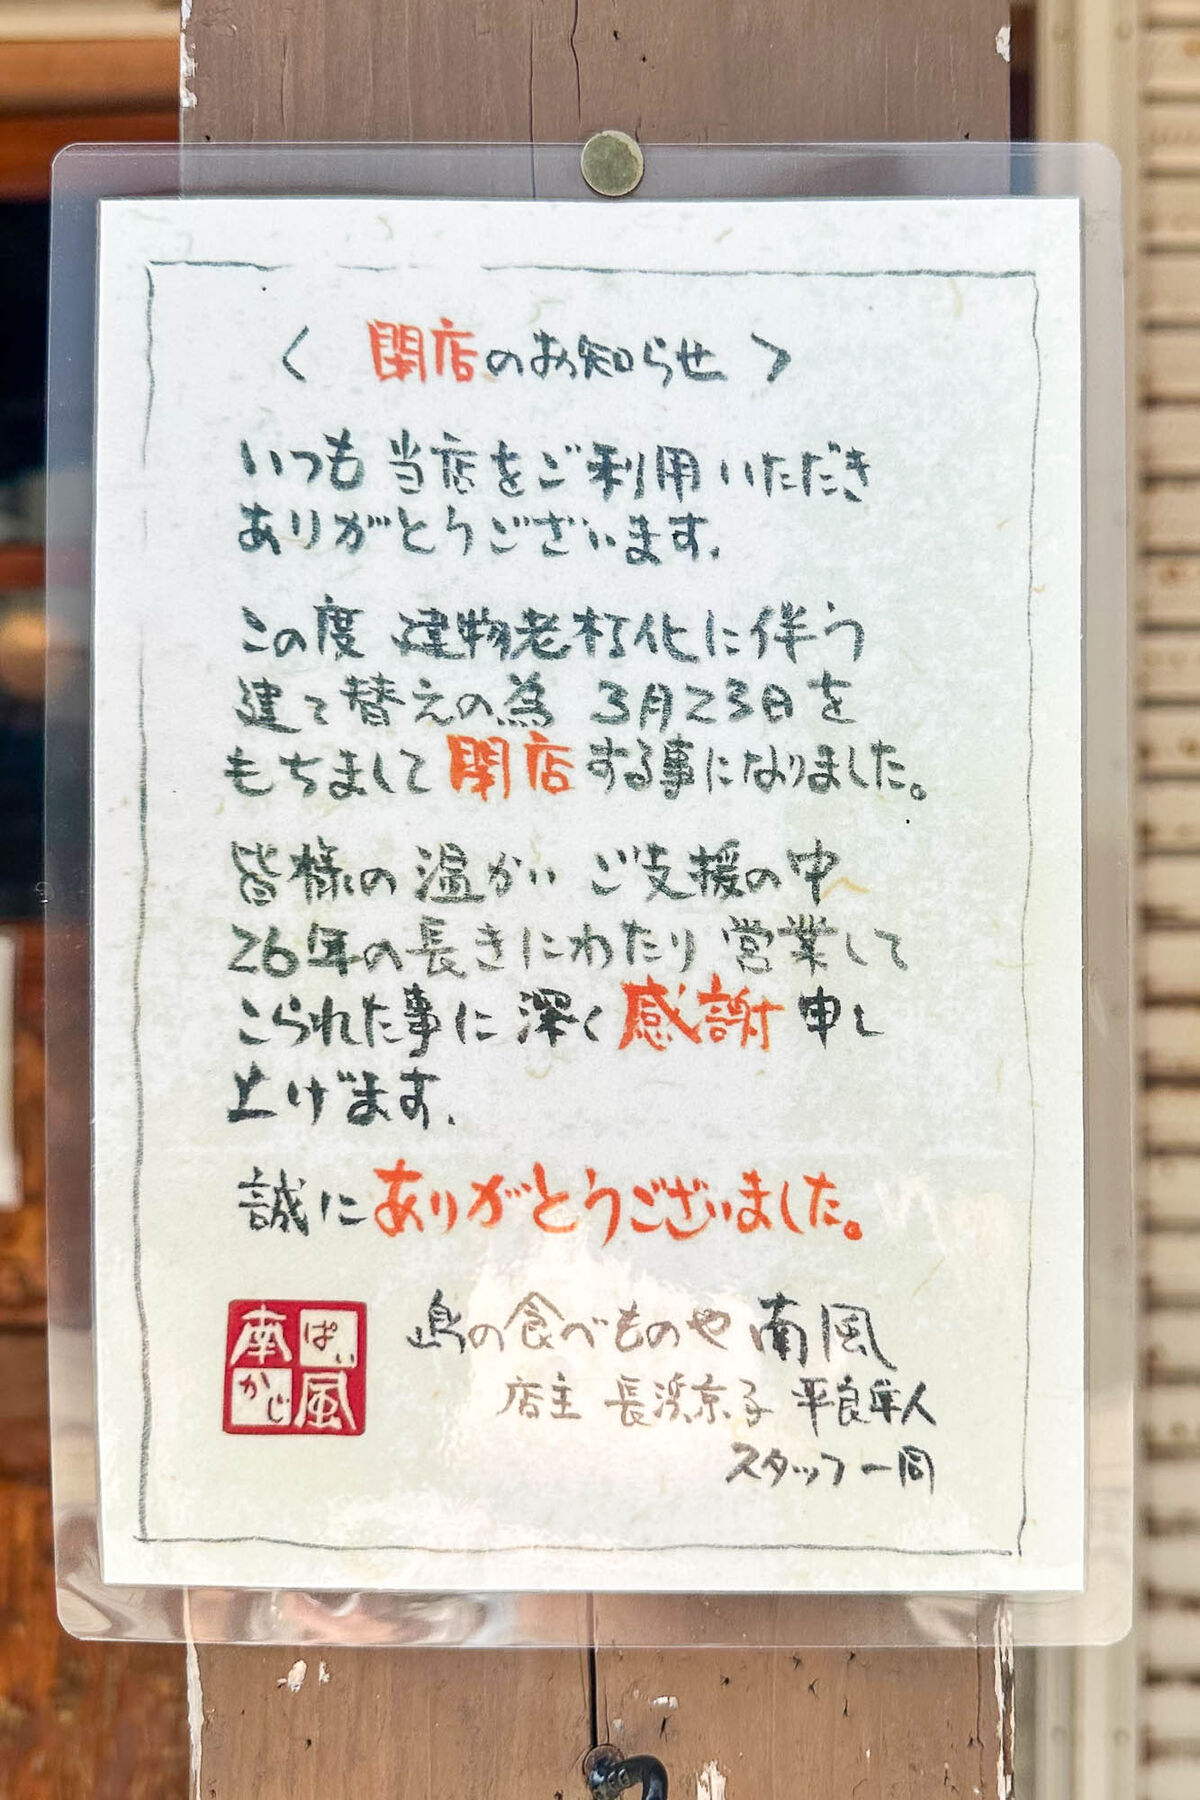 〈 閉店のお知らせ 〉
いつも 当店をご利用いただき
ありがとうございます.
この度 建物老朽化に伴う
建て替えの為 3月23日を
もちまして 閉店する事になりました。
皆様の 温かい ご支援の中
26年の長きにわたり 営業して
こられた事に 深く 感謝 申し
上げます.
誠に ありがとうございました。
南 ぱい
かじ 風
島の食べものや 南風
店主 長浜京子 平良隼人
スタッフ 一同